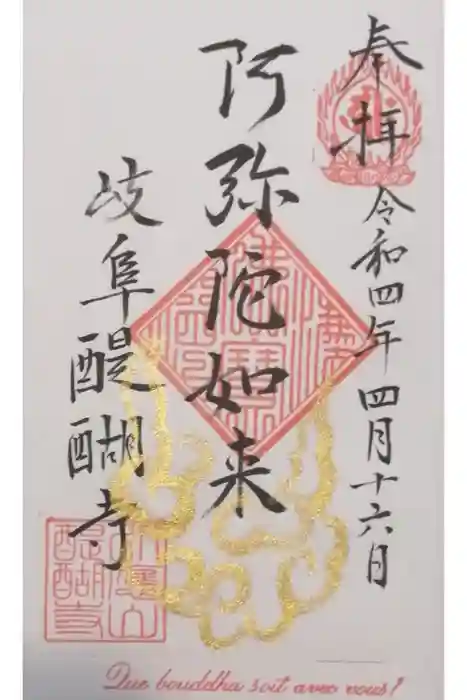 奉拝
令和四年四月十六日
阿弥陀如来
岐阜醍醐寺
Que bouddha soit avec vous!